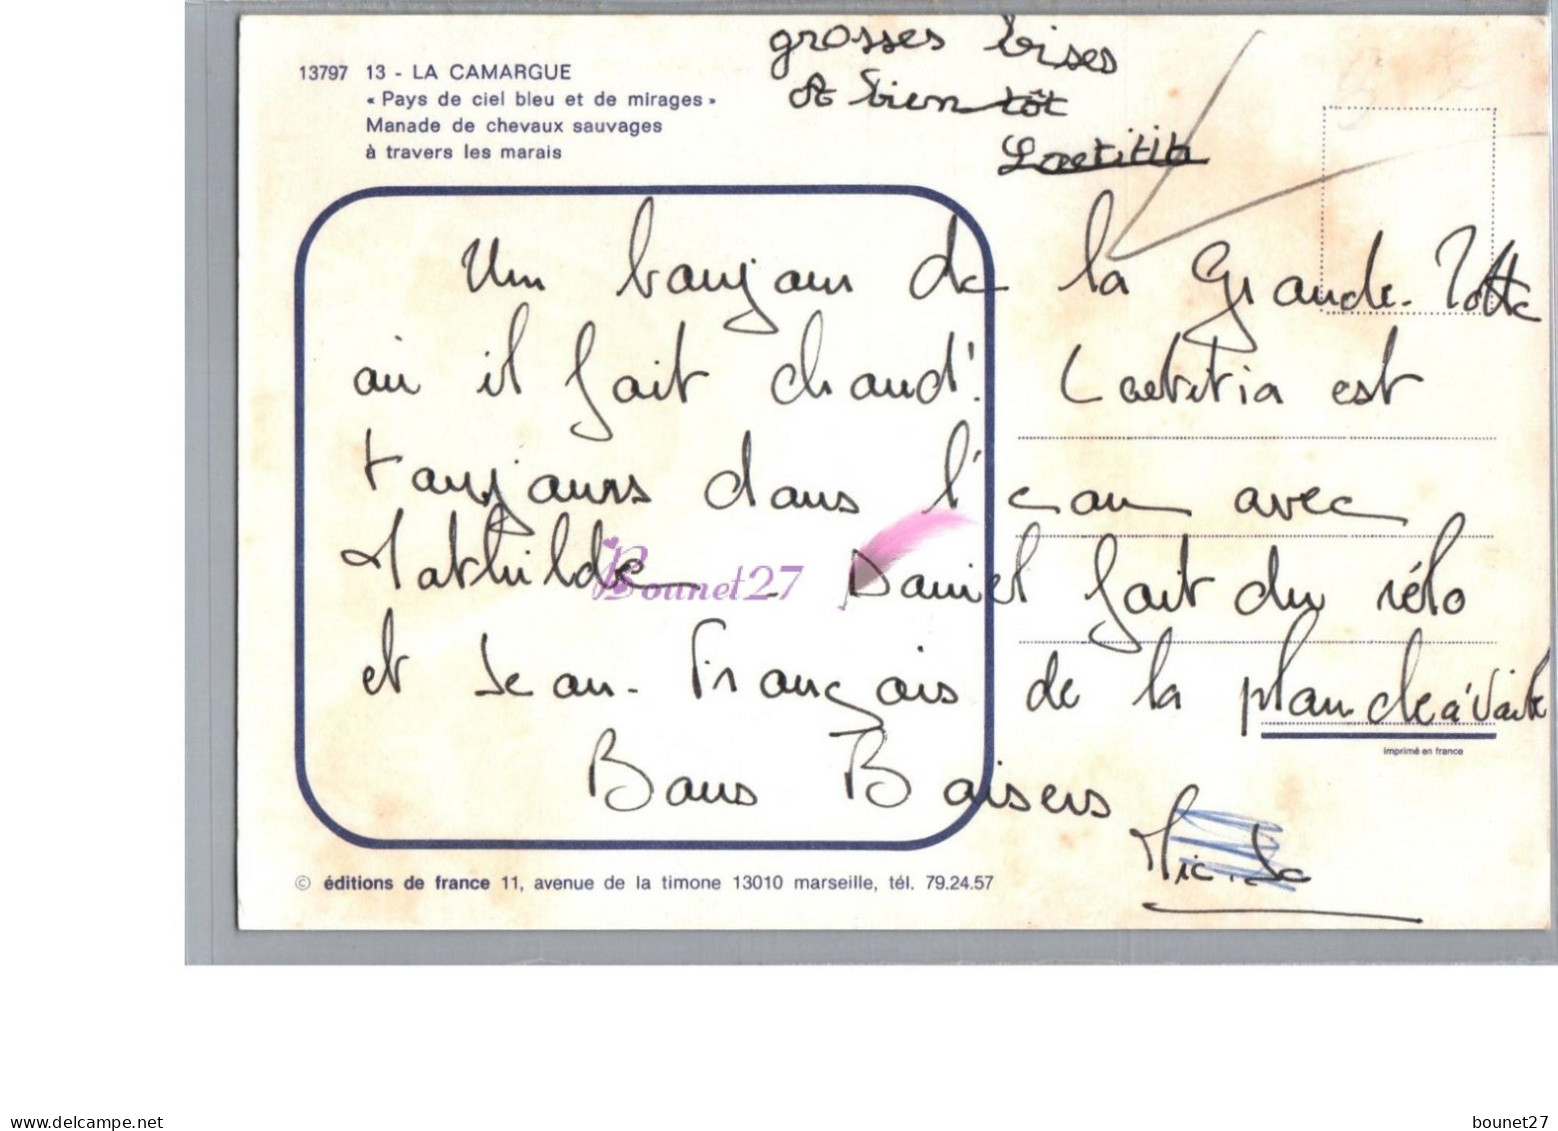 grosses bises
A bientôt
Laetitia
13797 13 - LA CAMARGUE
« Pays de ciel bleu et de mirages »
Manade de chevaux sauvages
à travers les marais
Un bonjour de la Grande-Motte
où il fait chaud! Laetitia est
toujours dans l'eau avec
Mathilde - Daniel fait du vélo
et Jean-François de la planche à voile
Bons Baisers
imprimé en france
© éditions de france 11, avenue de la timone 13010 marseille, tél. 79.24.57
Bounet27
www.delcampe.net
bounet27